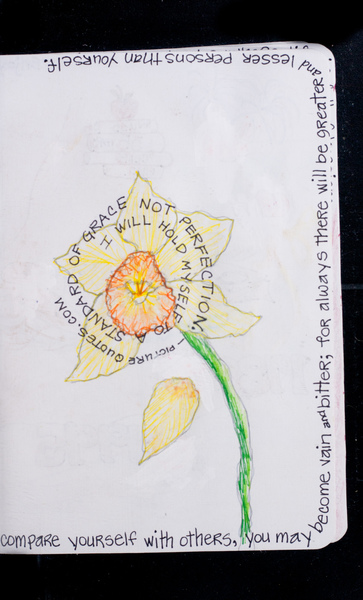 I WILL HOLD MYSELF TO A
STANDARD OF GRACE NOT PERFECTION.
— PICTURE QUOTES.COM
compare yourself with others, you may
become vain and bitter; for always there will be greater
and lesser persons than yourself.